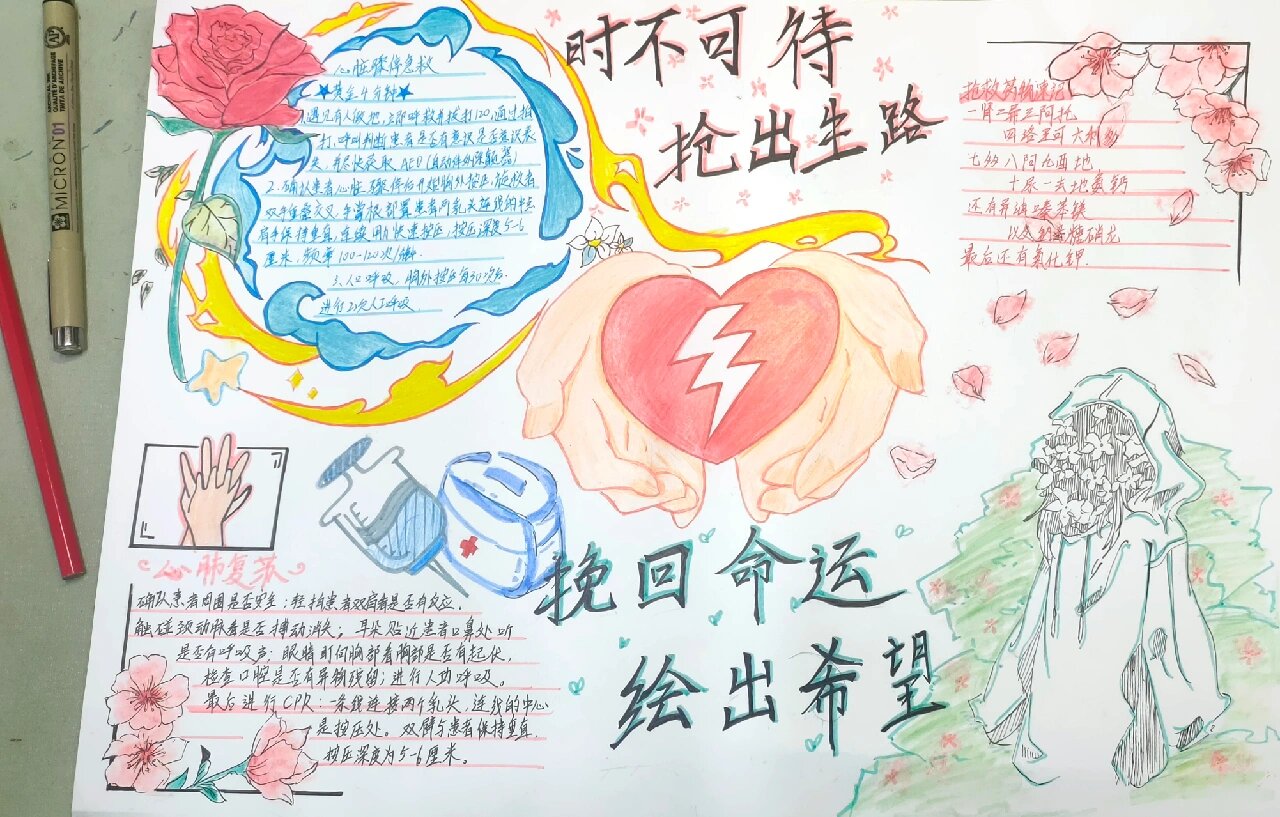 时不可待
抢出生路
心脏骤停急救
★黄金4分钟★
1.遇见有人倒地,立即呼救并拨打120,通过拍
打、呼叫判断患者是否有意识是否意识丧
失,并尽快获取AED(自动体外除颤器)
2.确认患者心脏骤停后开始胸外按压,施救者
双手重叠交叉,手掌根部置患者两乳头连线的中点
肩手保持垂直,连续用力快速按压,按压深度5-6
厘米,频率100-120次/分钟.
3.人口呼吸,胸外按压每30次后
进行2次人工呼吸
抢救药物速记
一肾二异三阿托
四洛五可六利多
七多八间九西地
十尿一去地塞钙
还有
最后还有氯化钾.
心肺复苏
确认患者周围是否安全;轻拍患者双肩看是否有反应.
触碰颈动脉看是否搏动消失;耳朵贴近患者口鼻处听
是否有呼吸声;眼睛盯向胸部看胸部是否有起伏,
检查口腔是否有异物残留;进行人功呼吸。
最后进行CPR:一条线连接两个乳头,连线的中心
是按压处。双臂与患者保持垂直
按压深度为5-6厘米。
挽回命运
绘出希望
MICRON 01